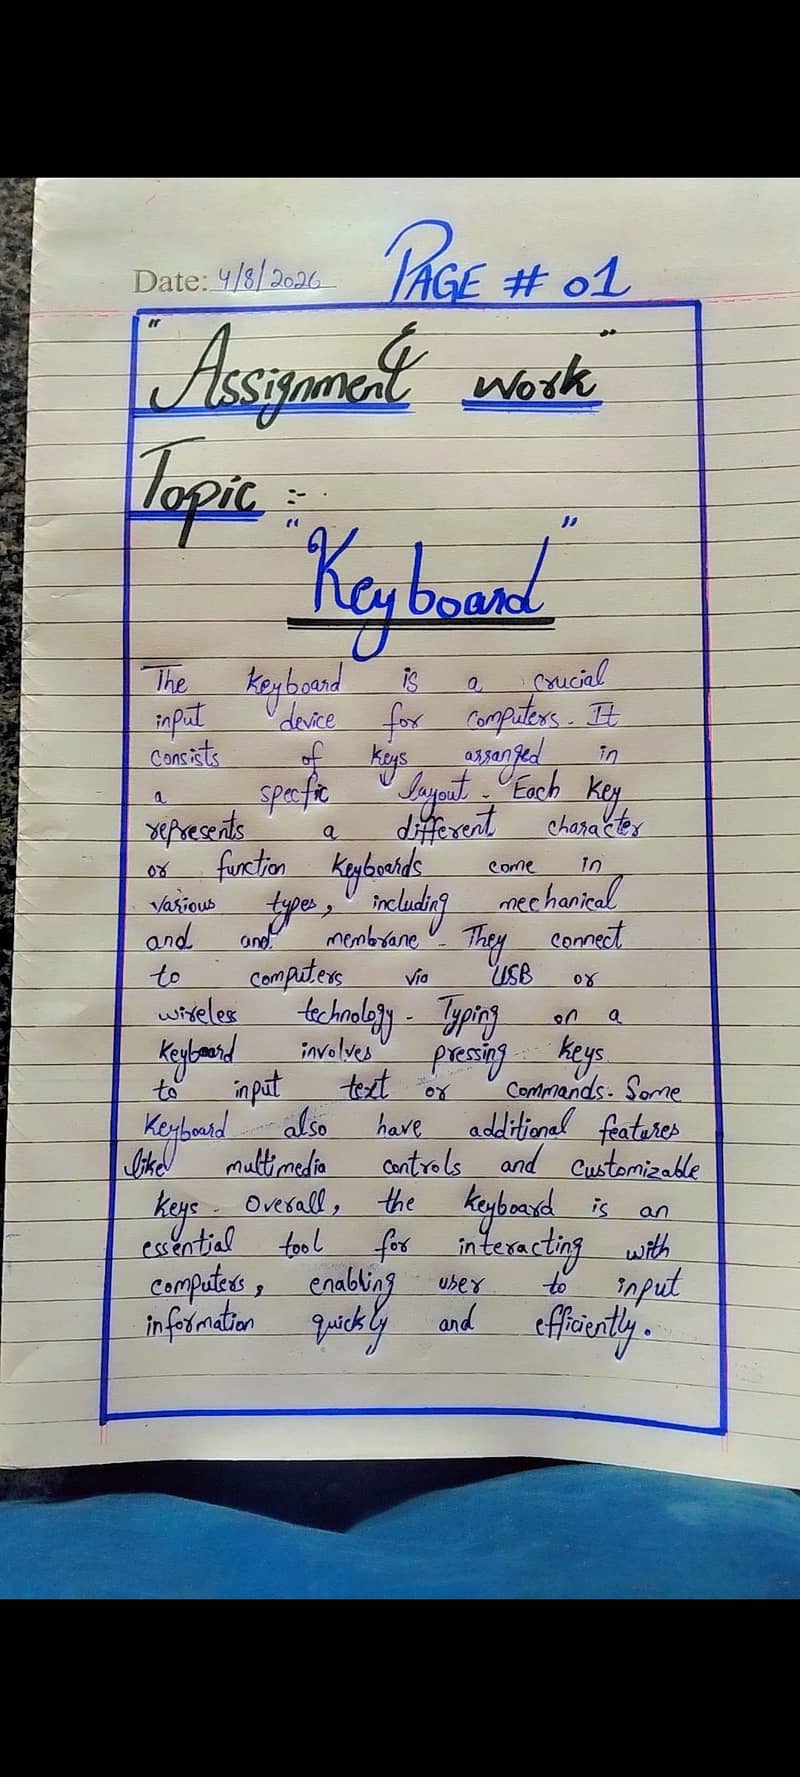 Date: 4/8/2026 PAGE # 01
"Assignment work"
Topic :-
"Keyboard"
The keyboard is a crucial
input device for computers. It
consists of keys arranged in
a specfic layout. Each key
represents a different character
or function keyboards come in
various types, including mechanical
and and membrane. They connect
to computers via USB or
wireless technology. Typing on a
keyboard involves pressing keys
to input text or commands. Some
keyboard also have additional features
like multimedia controls and customizable
keys. Overall, the keyboard is an
essential tool for interacting with
computers, enabling user to input
information quickly and efficiently.